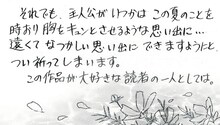 それでも、主人公がいつかは この夏のことを
時おり胸をキュンとさせるような思い出に…
遠くて なつかしい思い出にできますようにと、
つい祈ってしまいます。
この作品が大好きな読者の一人としては。